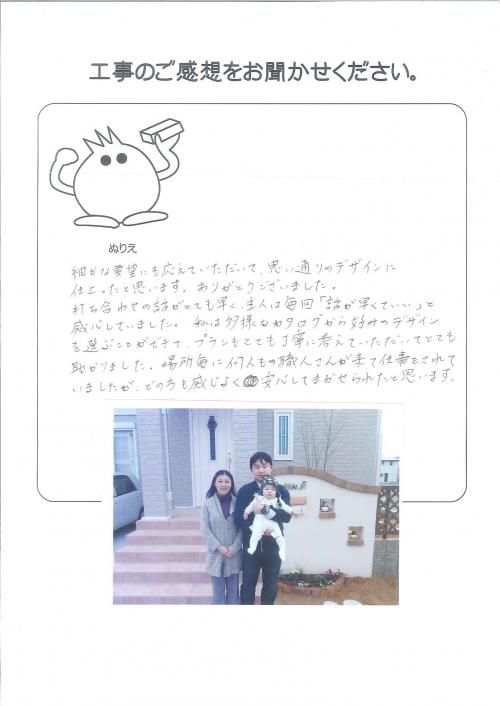 工事のご感想をお聞かせください。
ぬりえ
細かな要望にも応えていただいて、思い通りのデザインに
仕上ったと思います。ありがとうございました。
打ち合わせの話がとても早く、主人は毎回「話が早くていい」と
感心していました。私は多様なカタログから好みのデザイン
を選ぶことができて、プランもとても丁寧に考えていただいてとても
助かりました。場所毎に何人もの職人さんが来て仕事をされて
いましたが、どの方も感じよく安心してまかせられたと思います。